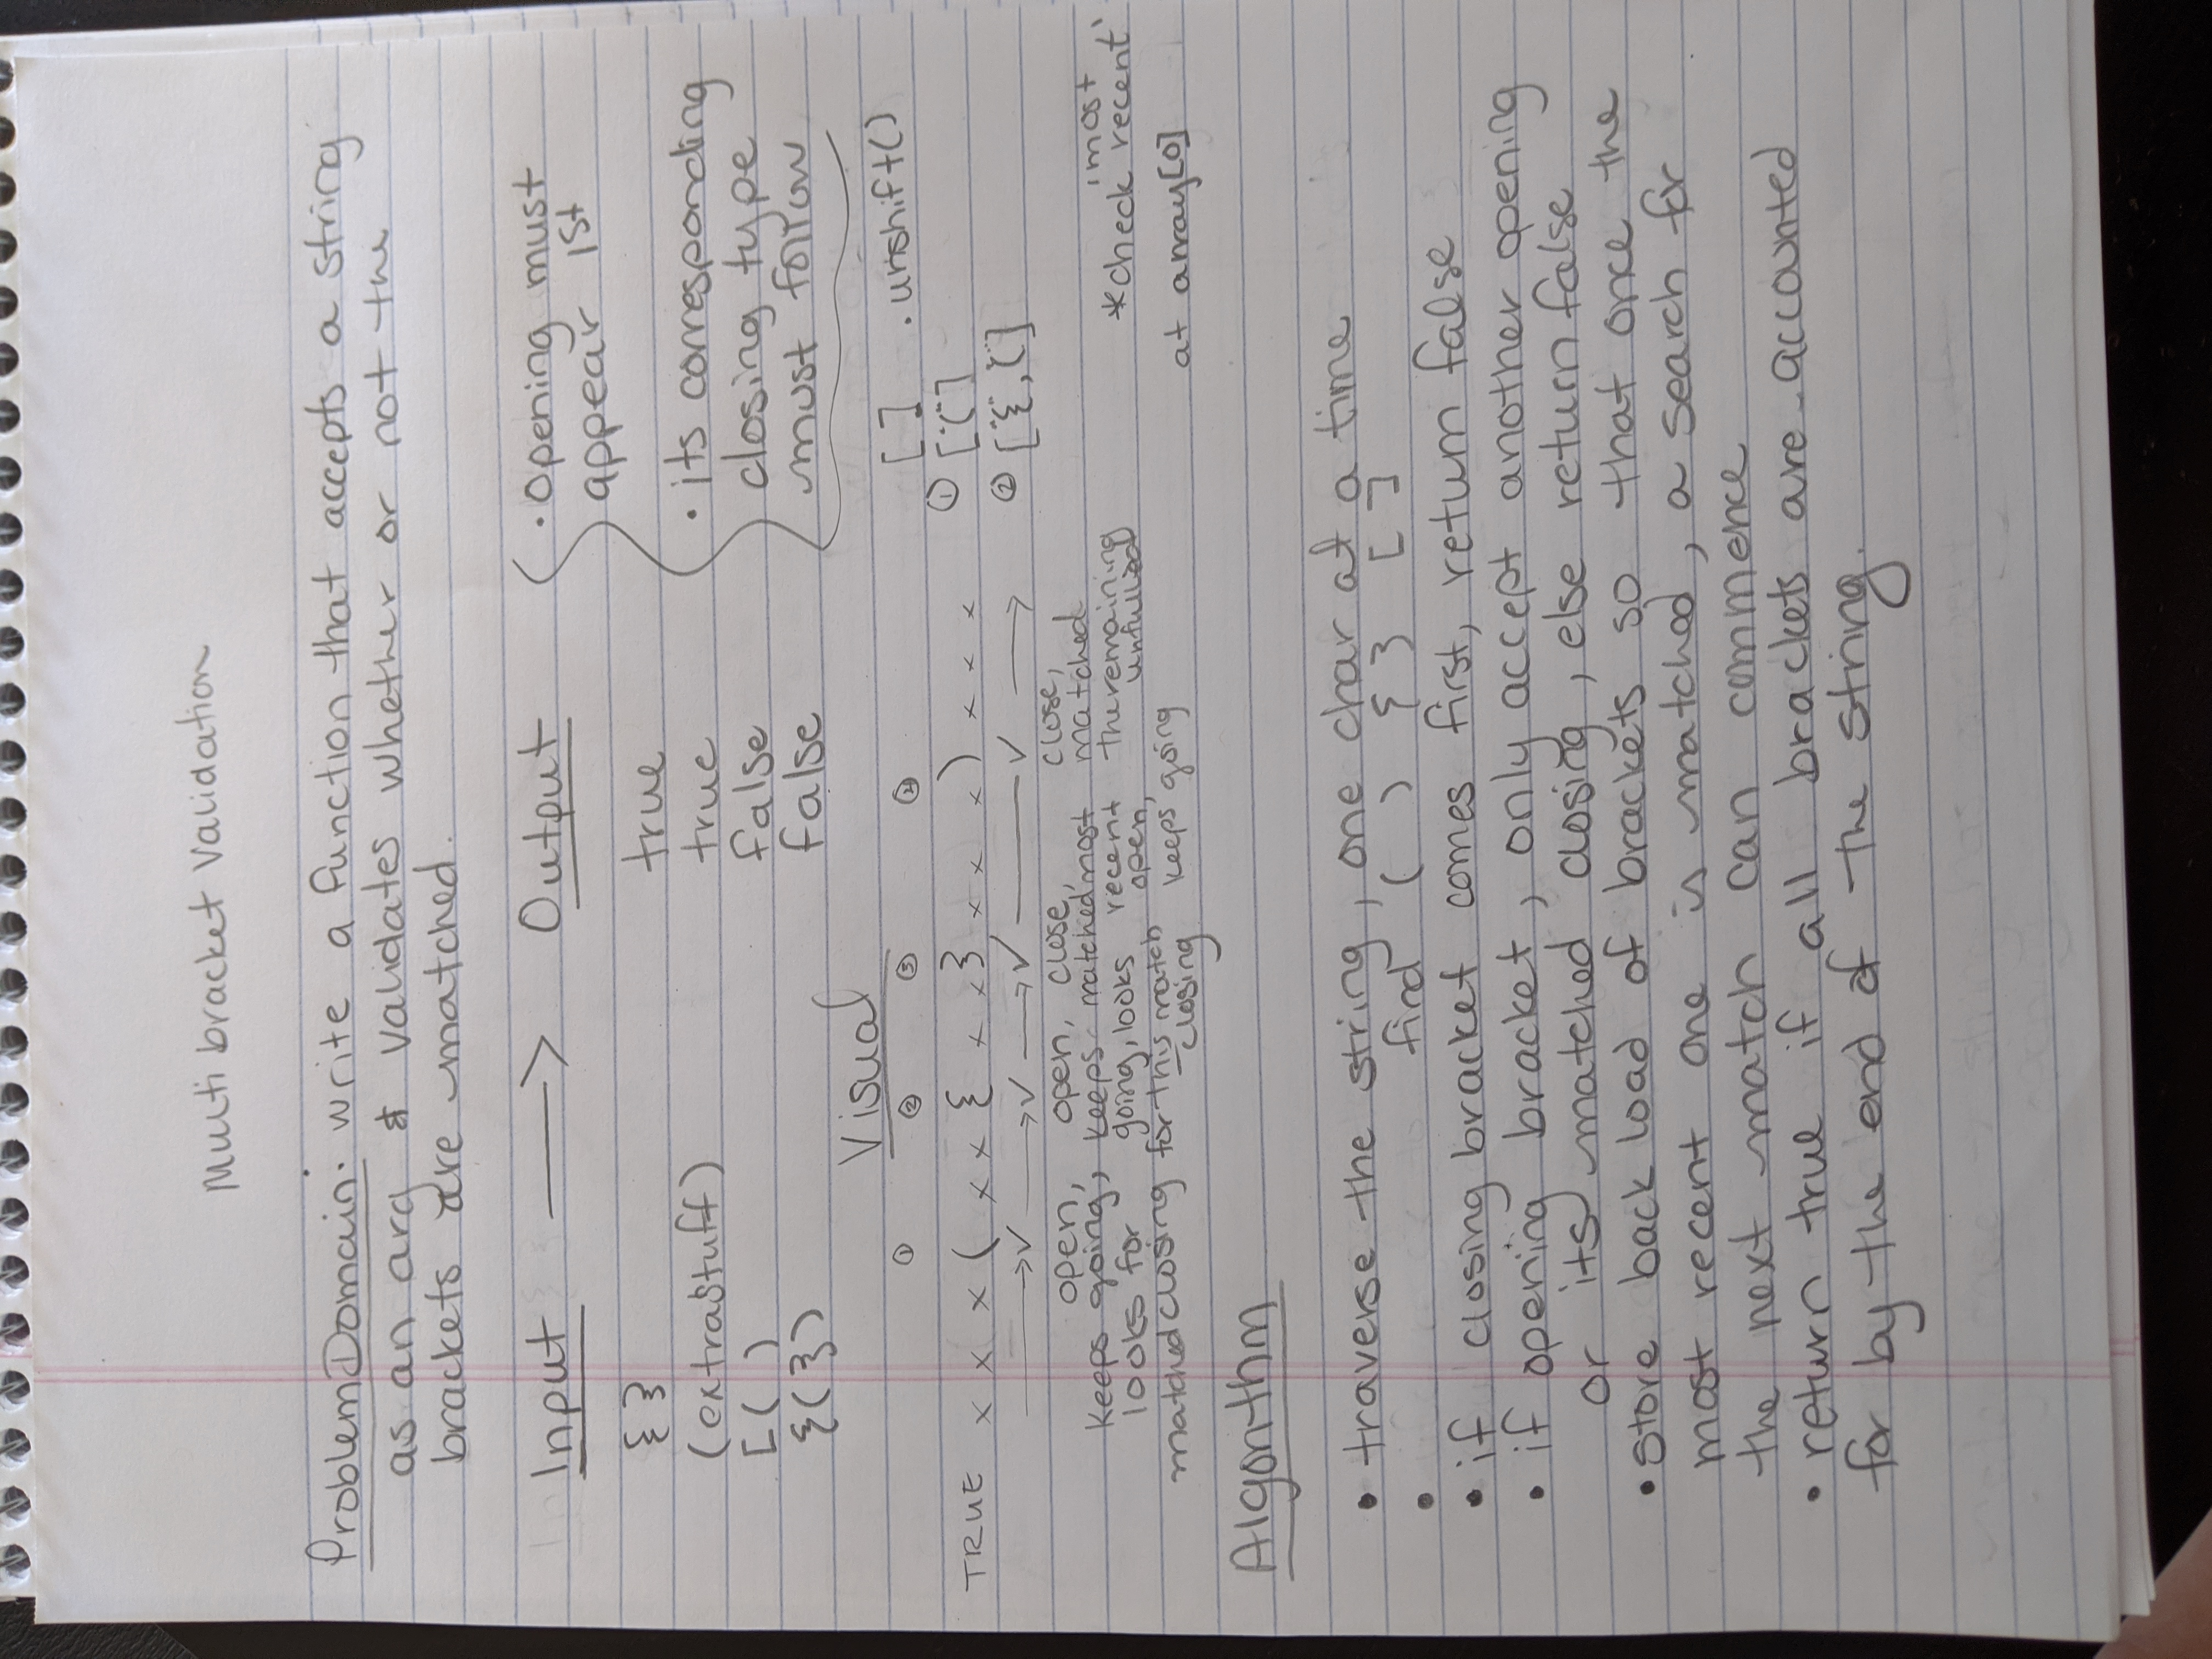 Multi bracket Validation
Problem Domain: write a function that accepts a string
as an arg & validates whether or not the
brackets are matched.
Input ⟶ Output
{ } true
(extrastuff) true
[( ) false
{(}) false
• opening must
appear 1st
• its corresponding
closing type
must follow
Visual
① ② ③ ④
TRUE x x x ( x x { x x } x x x ) x x x
→✓ →✓ →✓ —✓ →
open,
keeps going,
looks for
matched closing
open,
keeps
going, looks
for this match
closing
close,
matched most
recent
open,
keeps going
close,
matched
the remaining
unfulled
[ ] .unshift()
① ["("]
② ["{", "("]
*check 'most
recent'
at array[0]
Algorithm
• traverse the string, one char at a time
• find ( ) { } [ ]
• if closing bracket comes first, return false
• if opening bracket, only accept another opening
or its matched closing, else return false
• store back load of brackets so that once the
most recent one is matched, a search for
the next match can commence
• return true if all brackets are accounted
for by the end of the string.